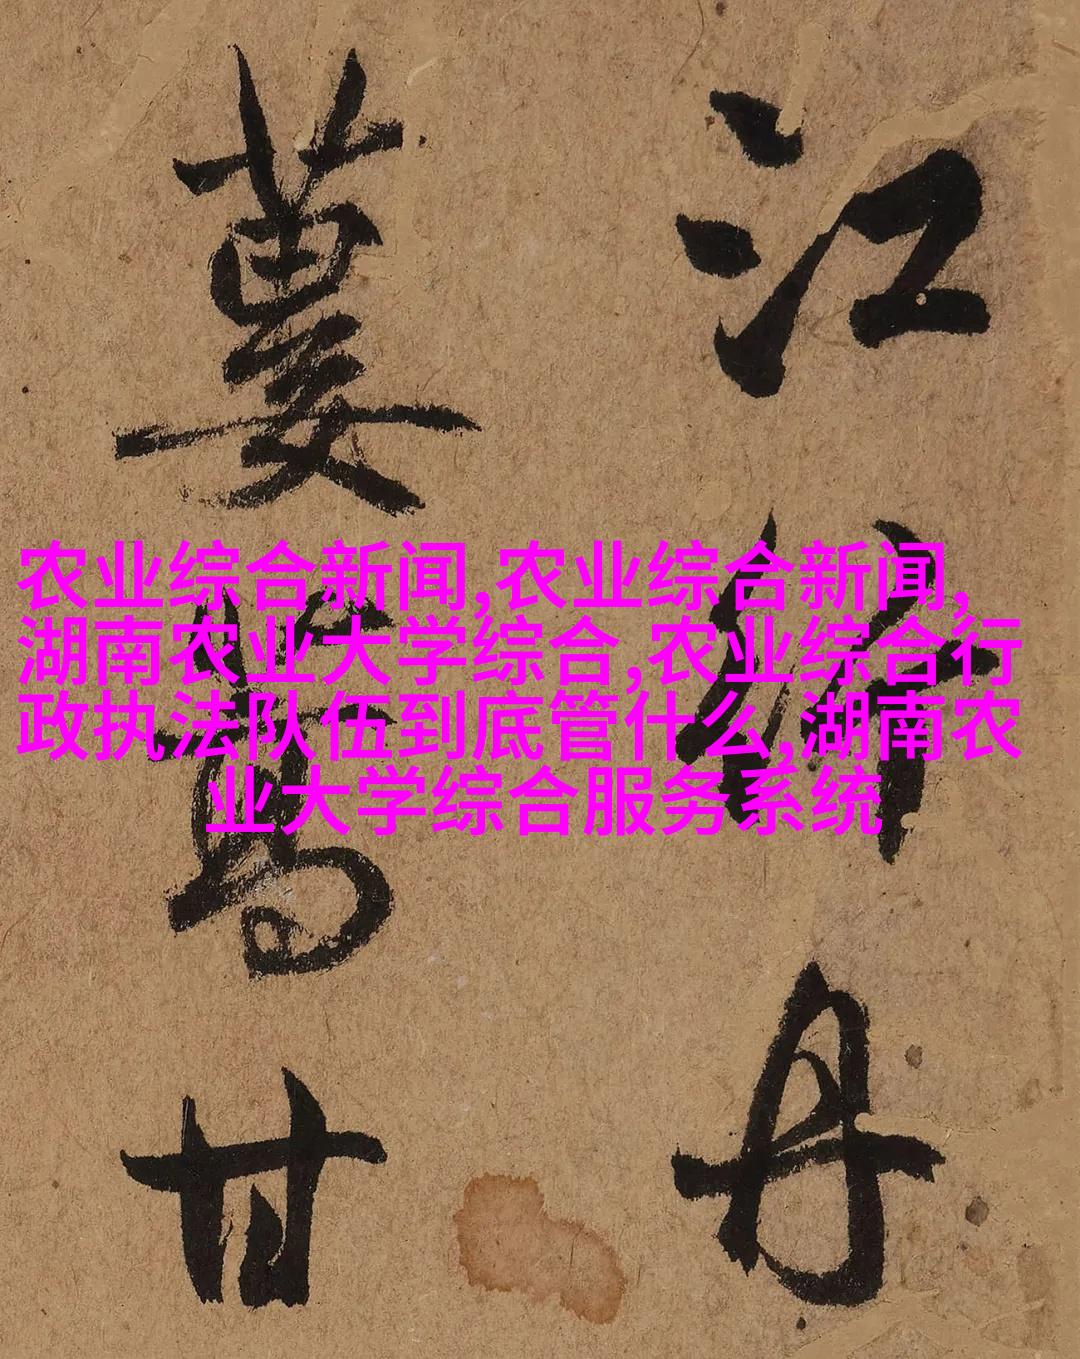 农业综合新闻,农业综合新闻,
湖南农业大学综合,农业综合行
政执法队伍到底管什么,湖南农
业大学综合服务系统
江
蔞蒿甘